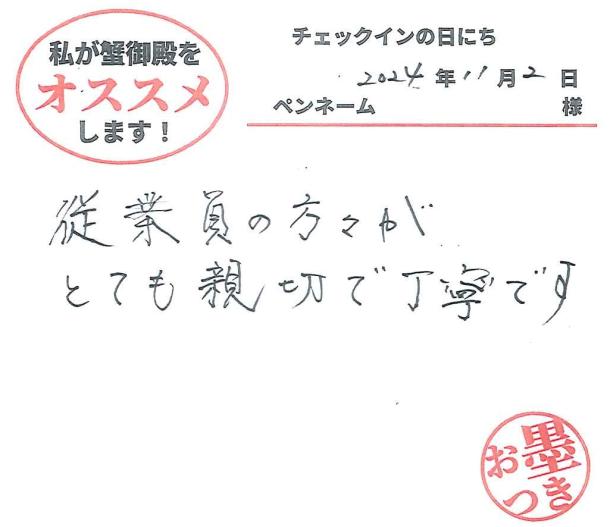 私が蟹御殿を
オススメ
します！
チェックインの日にち
2024年11月2日
ペンネーム 様
従業員の方々が
とても親切で丁寧です
お墨
つき